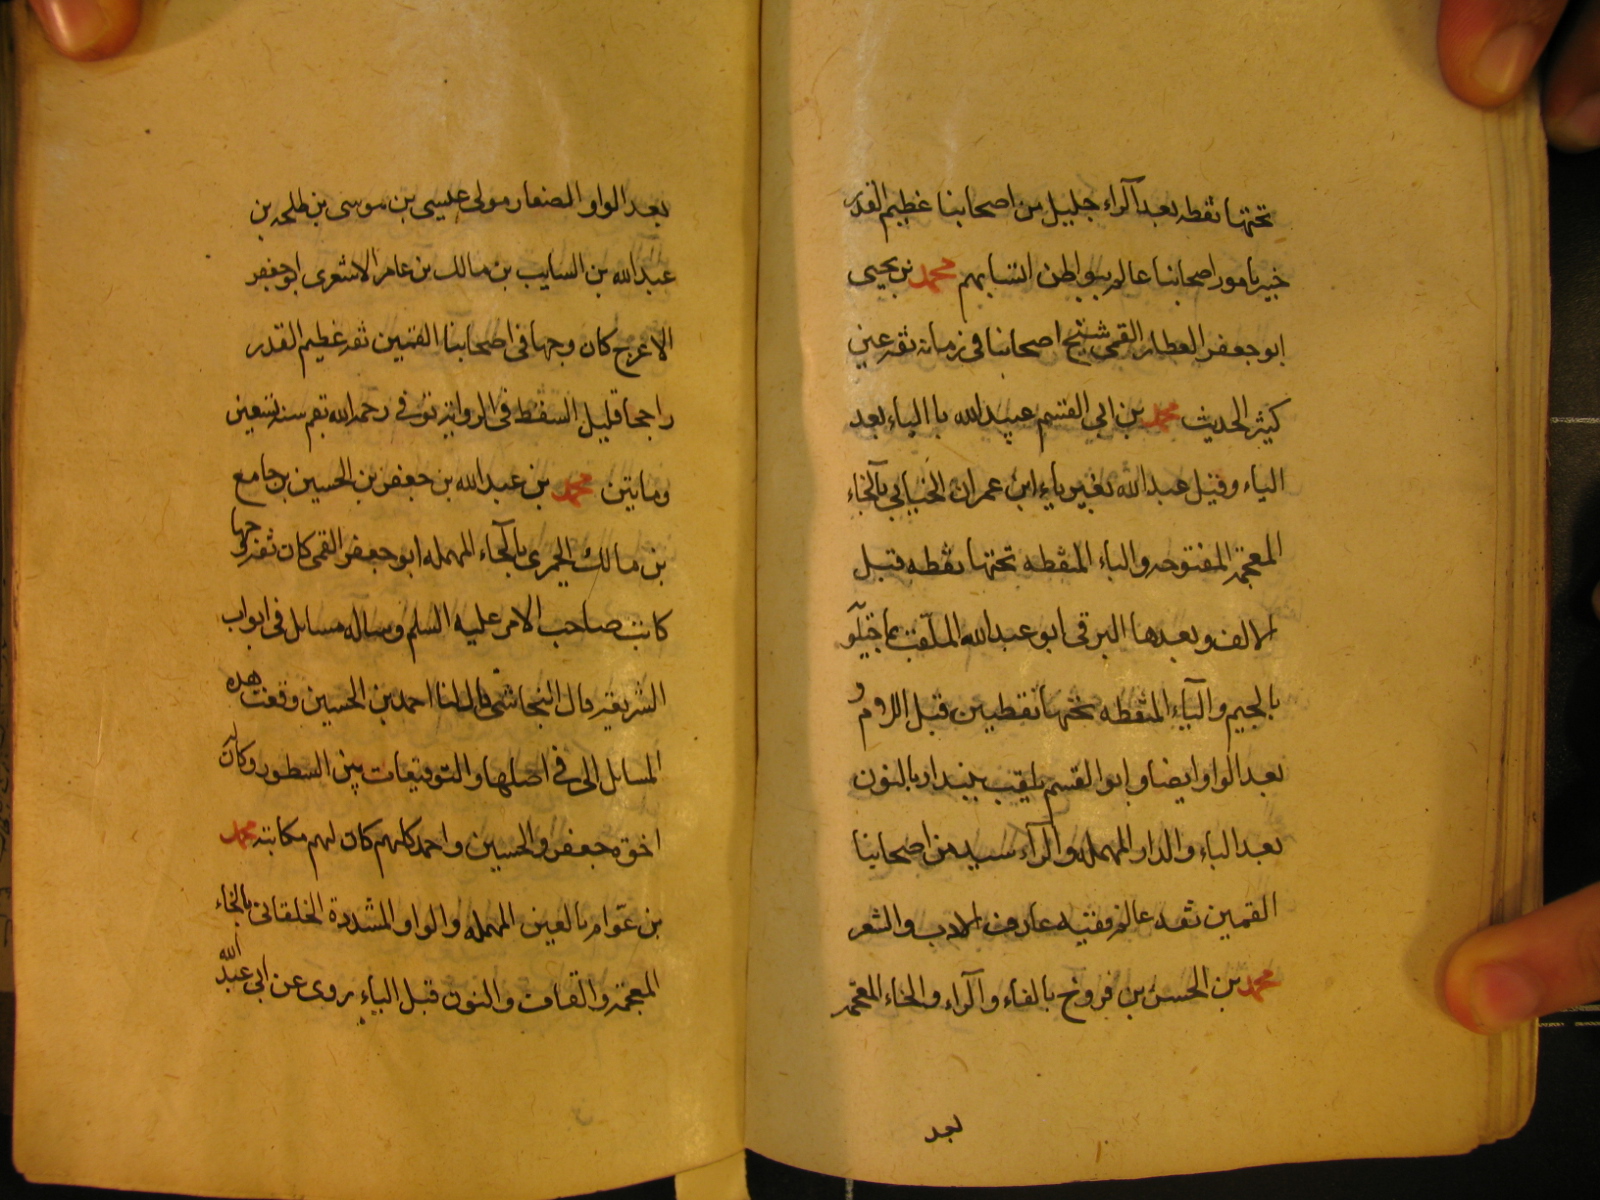 تحتها نقطه بعد الراء جليل من اصحابنا عظيم القدر
خبير بامور اصحابنا عالم ببواطن انسابهم محمد بن يحيى
ابو جعفر العطار القمى شيخ اصحابنا فى زمانه ثقه عين
كثير الحديث محمد بن ابى القسم عبيد الله با الياء بعد
الباء وقيل عبد الله بغير ياء ابن عمران الخبابى بالخاء
المعجمه المفتوحه والباء المنقطه تحتها نقطه قبل
الالف وبعدها البرقى ابو عبد الله الملقب بماجيلو
بالجيم والياء المنقطه تحتها نقطيين قبل اللام و
بعد الواو ايضا وابو القسم يلقب بندار بالنون
بعد الباء والدال المهمله والراء سيد من اصحابنا
القميين ثقه عالم فقيه عارف الادب والشعر
محمد بن الحسن بن فروخ بالفاء والراء والخاء المعجمه
بعد
بعد الواو الصفار مولى عيسى بن موسى بن طلحه بن
عبد الله بن السايب بن مالك بن عامر الاشعرى ابو جعفر
الاعرج كان وجها فى اصحابنا القميين ثقه عظيم القدر
راجحا قليل السقط فى الروايه توفى رحمه الله بقم سنه تسعين
ومايتين محمد بن عبد الله بن جعفر بن الحسين بن جامع
بن مالك الحميرى بالحاء المهمله ابو جعفر القمى كان ثقه وجها
كاتب صاحب الامر عليه السلم وساله مسايل فى ابواب
الشريعه قال النجاشى قال لنا احمد بن الحسين وقعت هذه
المسايل الى فى اصلها والتوقيعات بين السطور وكان له
اخوة جعفر والحسين واحمد كلهم كان لهم مكاتبه محمد
بن عوام بالعين المهمله والواو المشددة الخلقانى بالخاء
المعجمه والقاف والنون قبل الياء روى عن ابى عبد الله